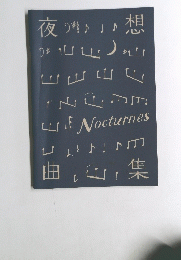 夜想
Nocturnes
曲集